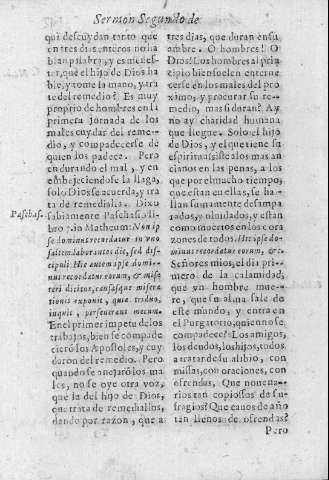 Sermon Segundo de
qui descuydan tanto que
en tres dias enteros no ha
blan palabra, y es menes-
ter, que el hijo de Dios ha
ble, y tome la mano, y tra
te del remedio? Es muy
proprio de hombres en la
primera jornada de los
males cuydar del reme-
dio, y compadecerse de
quien los padece. Pero
en durando el mal, y en
embejeciendose la llaga,
solo Dios se acuerda, y tra
ta de remedialla. Dixo
Paschas.
sabiamente Paschasio li-
bro 7. in Matheum: Non ip
se dominus recordatur in vno
saltem laborantes die, sed dis-
cipuli. Hic autem ipse domi-
nus recordatur eorum, & mise-
teri dicitur, causasque misera-
tionis exponit, quia triduo,
inquit, perseuerant mecum.
En el primer impetu de los
trabajos, bien se compade
ciero los Apostoles, y cuy
daron del remedio. Pero
quando se anejarō los ma
les, no se oye otra voz,
que la del hijo de Dios,
que trata de remediallos,
dando por razon, que a
tres dias, que duran en su
ombre. O hombres! O
Dios! Los hombres al prin
cipio bien suelen enterne
cerse en los males del pro
ximo, y procurar su re-
medio, mas si duran? Ay
no ay charidad humana
que llegue. Solo el hijo
de Dios, y el que tiene su
espiritu assiste a los mas an
cianos en las penas, a los
que por el mucho tiempo,
que estan en ellas, se ha-
llan sumamente desampa
rados, y oluidados, y estan
como muertos en los cora
zones de todos. Hic ipse do-
minus recordatur eorum, &c
Señores mios, el dia pri-
mero de la calamidad,
que vn hombre mue-
re, que su alma sale de
este mundo, y entra en
el Purgatorio, quien no se
compadece? Los amigos,
los deudos, los hijos, todos
a tratar de su aliuio, con
missas, con oraciones, con
ofrendas. Que nouena-
rios tan copiosos de su-
fragios? Que cauos de año
tan llenos de ofrendas?
Pero